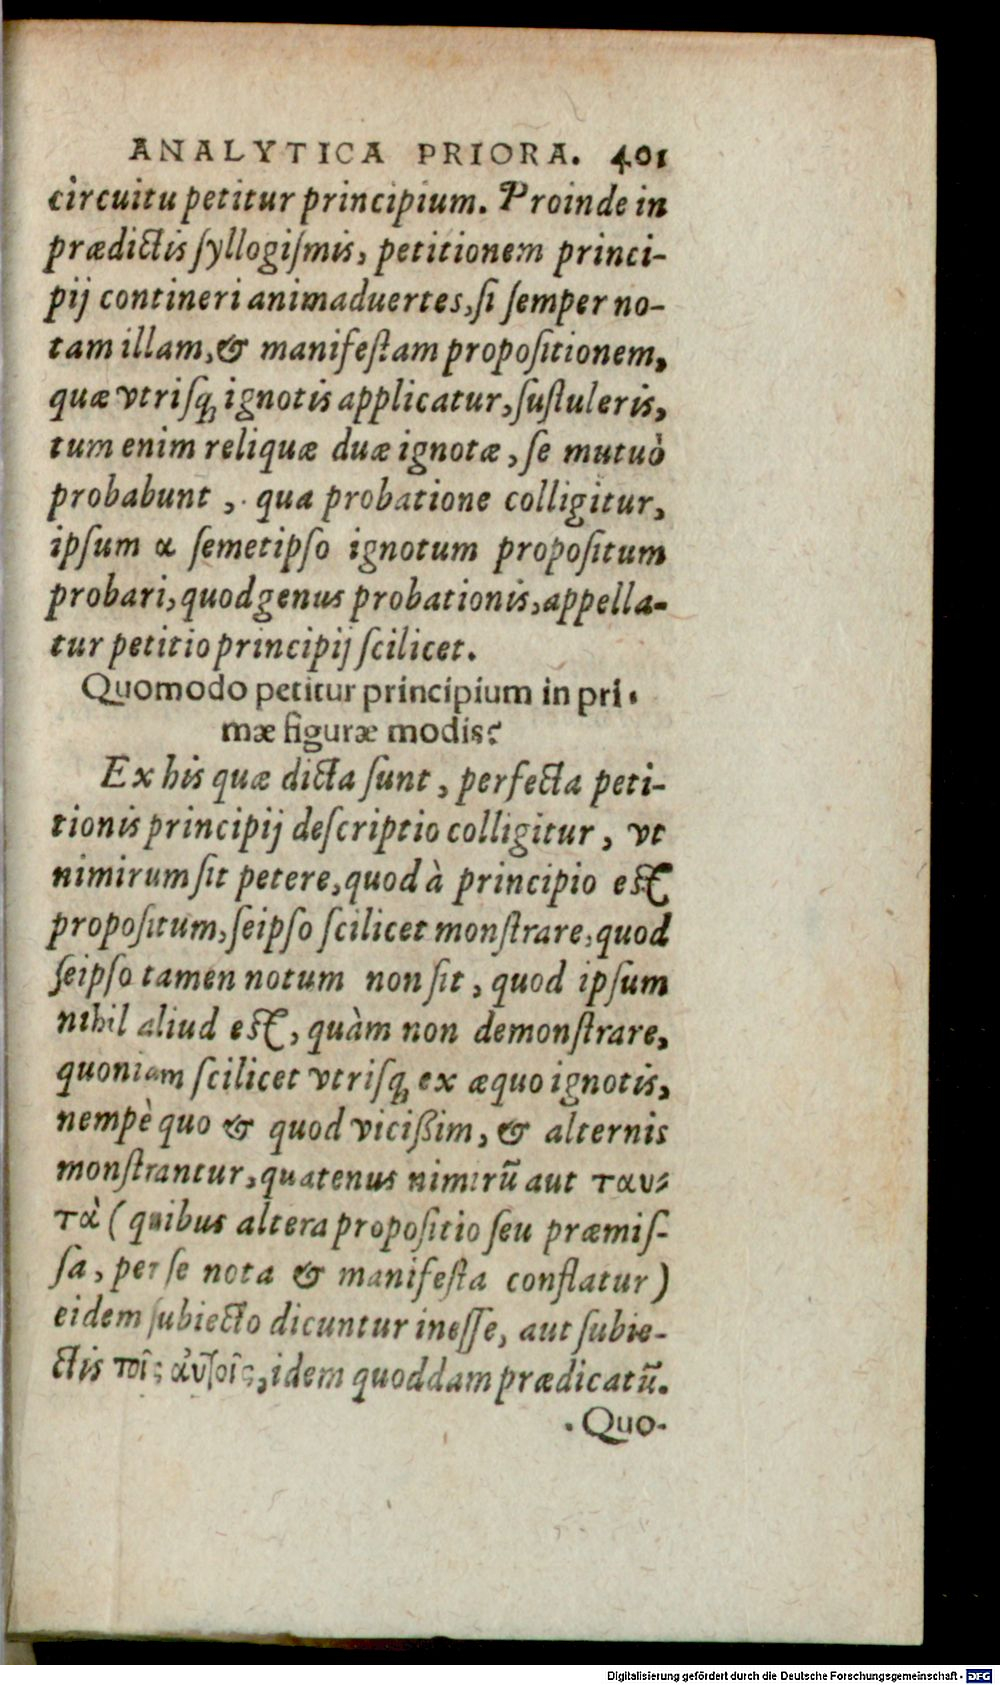 ANALYTICA PRIORA. 401
circuitu petitur principium. Proinde in
prædictis ſyllogiſmis, petitionem princi-
pij contineri animaduertes, ſi ſemper no-
tam illam, & manifeſtam propoſitionem,
quæ vtriſq́; ignotis applicatur, ſuſtuleris,
tum enim reliquæ duæ ignotæ, ſe mutuò
probabunt, qua probatione colligitur,
ipſum a ſemetipſo ignotum propoſitum
probari, quod genus probationis, appella-
tur petitio principij ſcilicet.
Quomodo petitur principium in pri-
mæ figuræ modis?
Ex his quæ dicta ſunt, perfecta peti-
tionis principij deſcriptio colligitur, vt
nimirum ſit petere, quod à principio eſt
propoſitum, ſeipſo ſcilicet monſtrare, quod
ſeipſo tamen notum non ſit, quod ipſum
nihil aliud eſt, quàm non demonſtrare,
quoniam ſcilicet vtriſq́; ex æquo ignotis,
nempè quo & quod vicißim, & alternis
monſtrantur, quatenus nimirũ aut ταυ-
τὰ (quibus altera propoſitio ſeu præmiſ-
ſa, per ſe nota & manifeſta conflatur)
eidem ſubiecto dicuntur ineſſe, aut ſubie-
ctis τοῖς αὐτοῖς, idem quoddam prædicatũ.
Quo-
Digitalisierung gefördert durch die Deutsche Forschungsgemeinschaft - DFG